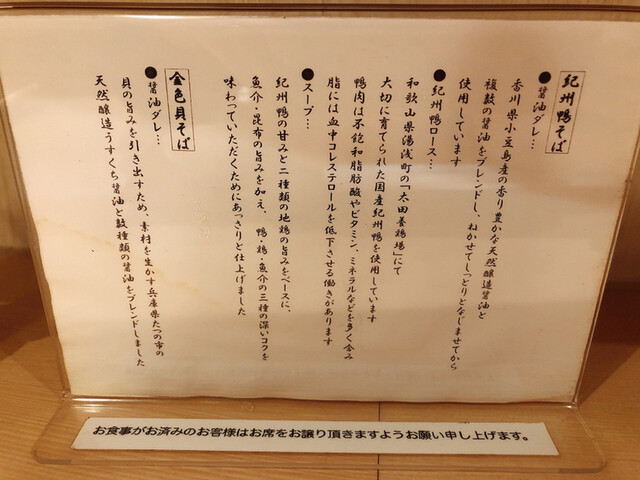 紀州鴨そば
●醤油ダレ…
香川県小豆島産の香り豊かな天然醸造醤油と
複数の醤油をブレンドし、ねかせてしっとりとなじませてから
使用しています
●紀州鴨ロース…
和歌山県湯浅町の「太田養鶏場」にて
大切に育てられた国産紀州鴨を使用しています
鴨肉は不飽和脂肪酸やビタミン、ミネラルなどを多く含み
脂には血中コレステロールを低下させる働きがあります
●スープ…
紀州鴨の甘みと二種類の地鶏の旨みをベースに、
魚介・昆布の旨みを加え、鴨・鶏・魚介の三種の深いコクを
味わっていただくためにあっさりと仕上げました
金色貝そば
●醤油ダレ…
貝の旨みを引き出すため、素材を生かす兵庫県たつの市の
天然醸造うすくち醤油と数種類の醤油をブレンドしました
お食事がお済みのお客様はお席をお譲り頂きますようお願い申し上げます。